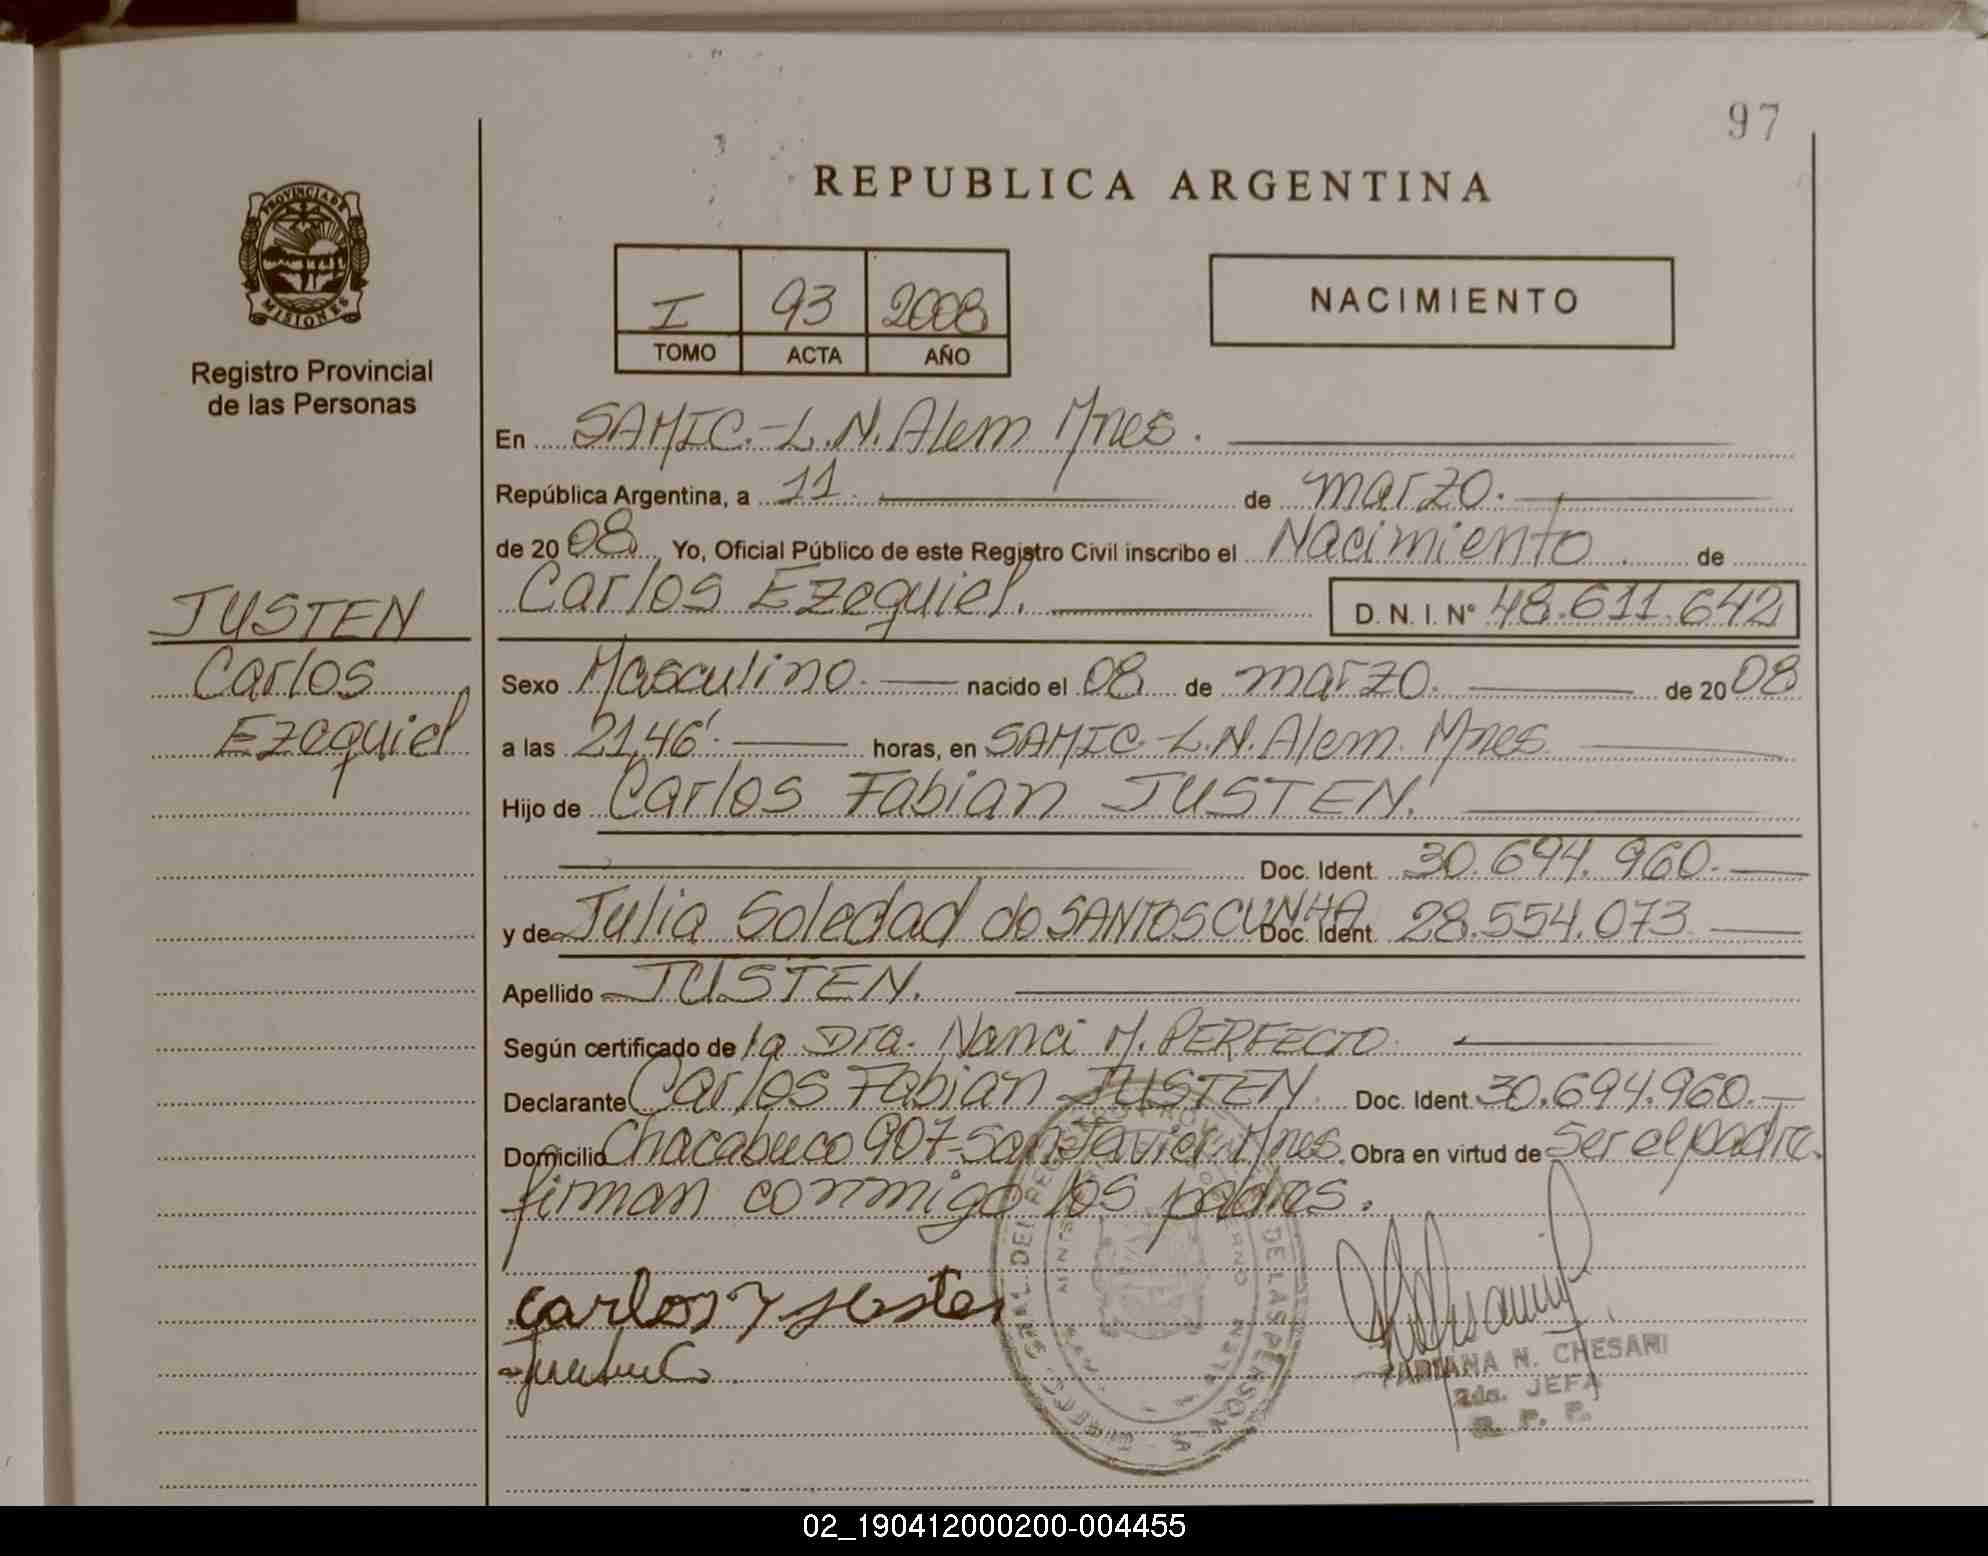 97
REPUBLICA ARGENTINA
PROVINCIA DE
MISIONES
Registro Provincial
de las Personas
I 93 2008
TOMO ACTA AÑO
NACIMIENTO
En SAMIC.-L.N.Alem Mnes.
República Argentina, a 11. de marzo.
de 2008 Yo, Oficial Público de este Registro Civil inscribo el Nacimiento de
Carlos Ezequiel. D. N. I. N° 48.611.642
JUSTEN
Carlos
Ezequiel
Sexo Masculino. nacido el 08 de marzo. de 2008
a las 21,46'. horas, en SAMIC-L.N.Alem. Mnes
Hijo de Carlos Fabian JUSTEN.
Doc. Ident. 30.694.960.
y de Julia Soledad do SANTOS CUNHA Doc. Ident. 28.554.073
Apellido JUSTEN.
Según certificado de la Dra. Nanci M. PERFECTO
Declarante Carlos Fabian JUSTEN Doc. Ident. 30.694.960.
Domicilio Chacabuco 907-San Javier. Mnes. Obra en virtud de Ser el padre.
firman conmigo los padres.
DE LAS PERSONAS
CHESANI
2da. JEFA
R. P. P.
02_190412000200-004455